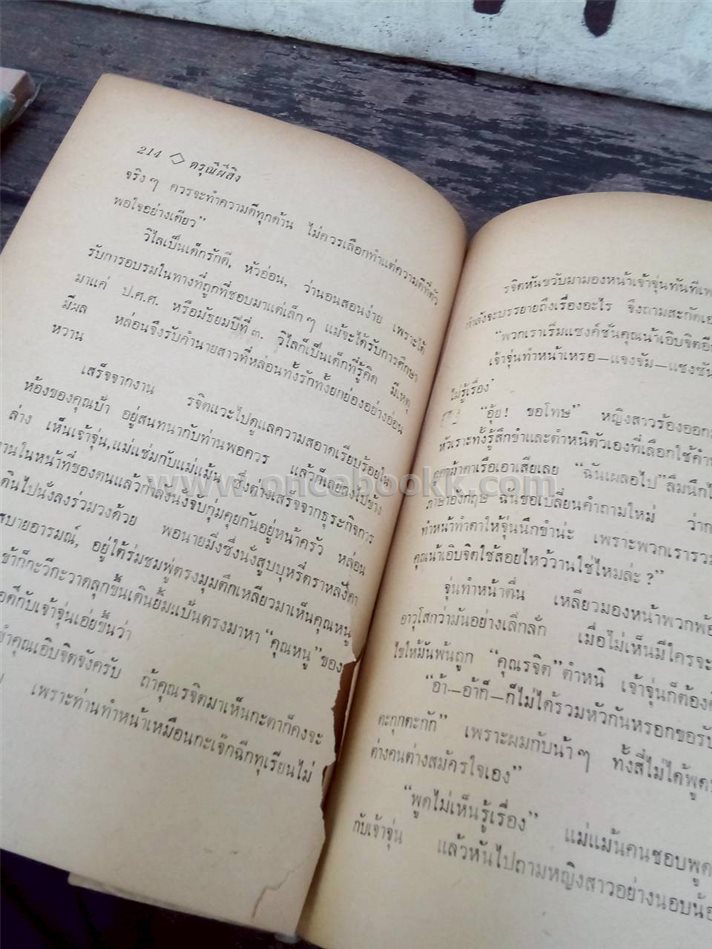 214 ◇ ดรุณีผีสิง
จริงๆ ควรจะทำความดีทุกด้าน ไม่ควรเลือกทำแต่ความดีที่ตัว
พอใจอย่างเดียว”
วิไลเป็นเด็กรักดี, หัวอ่อน, ว่านอนสอนง่าย เพราะได้
รับการอบรมในทางที่ถูกที่ชอบมาแต่เล็กๆ แม้จะได้รับการศึกษา
มาแค่ ป.ศ.ศ. หรือมัธยมปีที่ ๓. วิไลก็เป็นเด็กที่รู้คิด มีเหตุ
มีผล หล่อนจึงรับคำนายสาวที่หล่อนทั้งรักทั้งยกย่องอย่างอ่อน
หวาน
เสร็จจากงาน รจิตแวะไปดูแลความสอาดเรียบร้อยใน
ห้องของคุณป้า อยู่สนทนากับท่านพอควร แล้วก็เลยลงไปข้าง
ล่าง เห็นเจ้าจุ่น, แม่แช่มกับแม่แม้น ซึ่งต่างเสร็จจากธุระกิจการ
งานในหน้าที่ของตนแล้วกำลังนั่งจับกลุ่มคุยกันอยู่หน้าครัว หล่อน
เดินไปนั่งลงร่วมวงด้วย พอนายมิ่งซึ่งนั่งสูบบุหรี่ตราหลังคา
สบายอารมณ์, อยู่ใต้ร่มชมพู่ตรงมุมตึกเหลียวมาเห็นคุณหนู
เข้าก็กะวีกะวาดลุกขึ้นเดินยิ้มแป้นตรงมาหา “คุณหนู” ของ
อดีกับเจ้าจุ่นเอ่ยขึ้นว่า
ขำคุณเอิบจิตจังครับ ถ้าคุณรจิตมาเห็นกะตาก็คงจะ
เพราะท่านทำหน้าเหมือนกะเจ๊กฉีกทุเรียนไม่
รจิตหันขวับมามองหน้าเจ้าจุ่นทันที
กำลังจะบรรยายถึงเรื่องอะไร จึงถามสะกัด
“พวกเราเริ่มแซงค์ชั่นคุณน้าเอิบจิตอีก
เจ้าจุ่นทำหน้าเหรอ—แจงจัม—แซงซัน
ไม่รู้เรื่อง
“อุ้ย! ขอโทษ” หญิงสาวร้องออก
หัวเราะทั้งรู้สึกขำและตำหนิตัวเองที่เลือกใช้คำ
ออกท่าตาเรือเอาเสียเลย “ฉันเผลอไป” ลืมนึก
ภาษาอังกฤษ ฉันขอเปลี่ยนคำถามใหม่ ว่า
ทำหน้าทำตาให้จุ่นนึกขำน่ะ เพราะพวกเรารวม
คุณน้าเอิบจิตใช้สอยไหว้วานใช่ไหมล่ะ?”
จุ่นทำหน้าตื่น เหลียวมองหน้าพวกพ้อง
อาวุโสกว่ามันอย่างเลิ่กลั่ก เมื่อไม่เห็นมีใครจะ
ไขให้มันพ้นถูก “คุณรจิต” ตำหนิ เจ้าจุ่นก็ต้อง
“อ้า—อ้าก็—ก็ไม่ได้รวมหัวกันหรอกขอรับ
ตะกุกตะกัก” เพราะผมกับน้าๆ ทั้งสี่ไม่ได้พูด
ต่างคนต่างสมัครใจเอง”
“พูดไม่เห็นรู้เรื่อง” แม่แม้นคนชอบพูด
กับเจ้าจุ่น แล้วหันไปถามหญิงสาวอย่างนอบน้อ
www.oncebookk.com